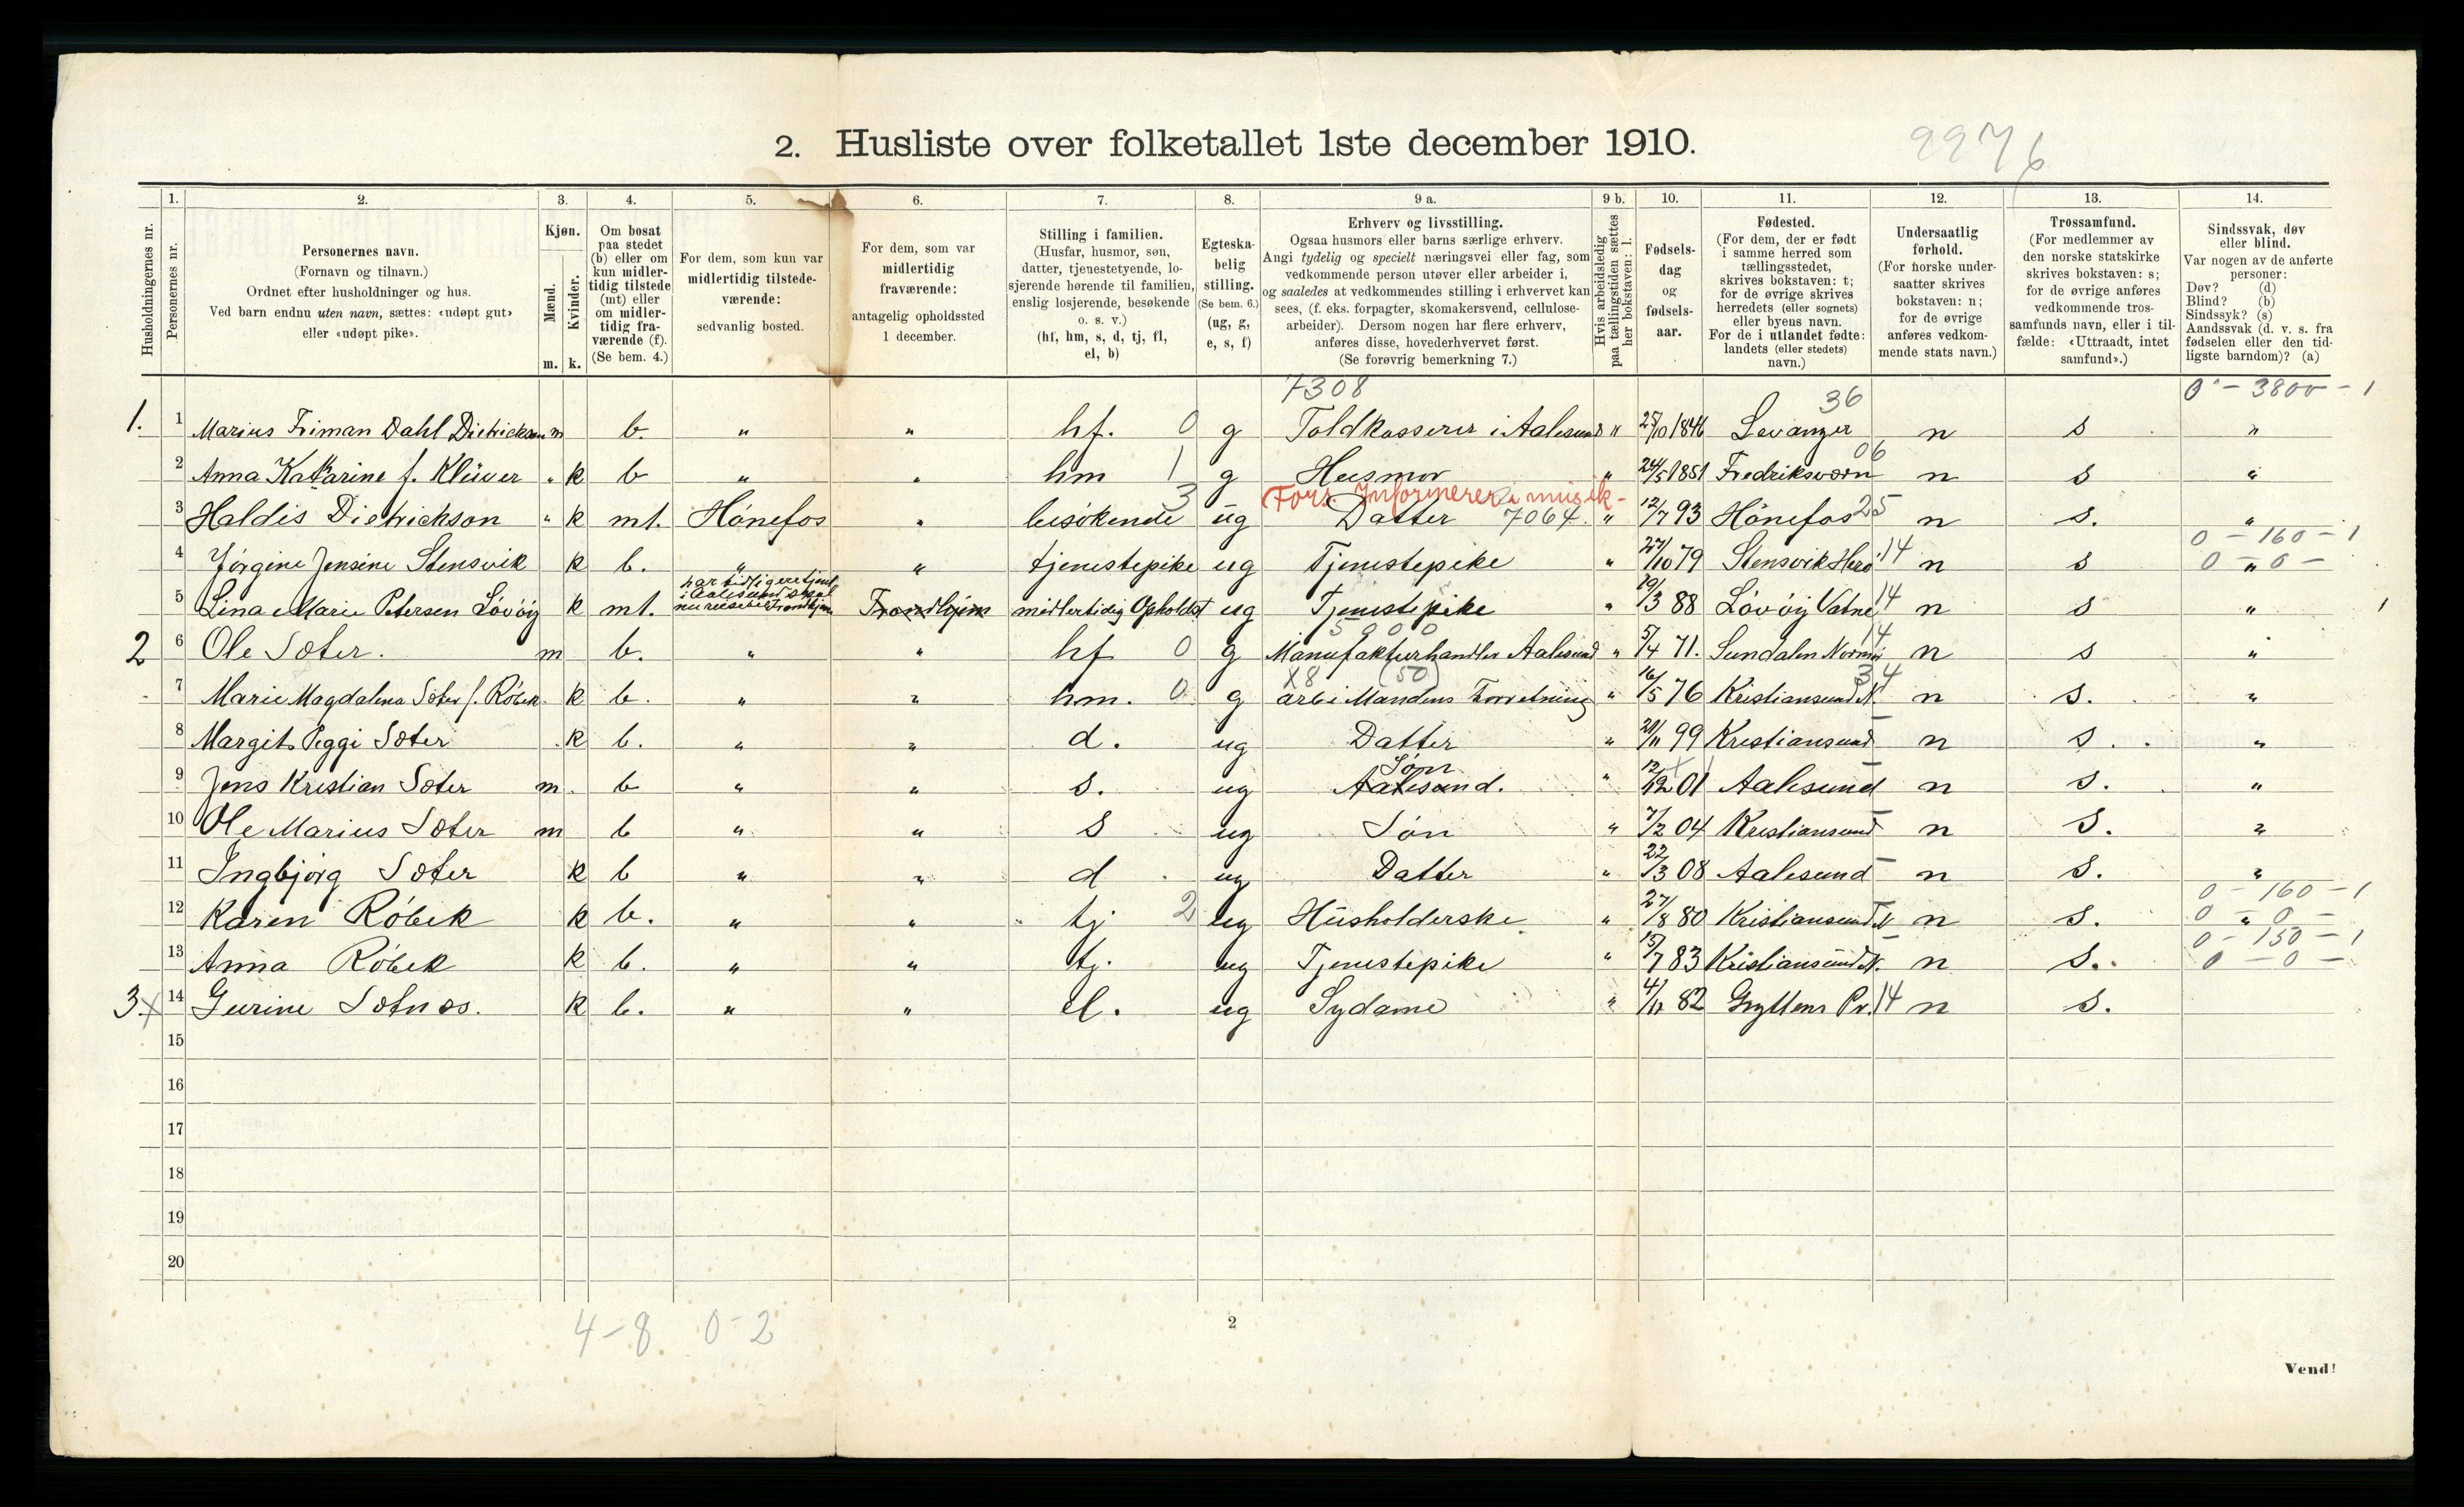 2. Husliste over folketallet 1ste december 1910.
2276
Husholdningernes nr.
1. Personernes nr.
2. Personernes navn. (Fornavn og tilnavn.) Ordnet efter husholdninger og hus. Ved barn endnu uten navn, sættes: «udøpt gut» eller «udøpt pike».
3. Kjøn. Mænd. m. Kvinder. k.
4. Om bosat paa stedet (b) eller om kun midlertidig tilstede (mt) eller om midlertidig fraværende (f). (Se bem. 4.)
5. For dem, som kun var midlertidig tilstedeværende: sedvanlig bosted.
6. For dem, som var midlertidig fraværende: antagelig opholdssted 1 december.
7. Stilling i familien. (Husfar, husmor, søn, datter, tjenestetyende, losjerende hørende til familien, enslig losjerende, besøkende o. s. v.) (hf, hm, s, d, tj, fl, el, b)
8. Egteskabelig stilling. (Se bem. 6.) (ug, g, e, s, f)
9 a. Erhverv og livsstilling. Ogsaa husmors eller barns særlige erhverv. Angi tydelig og specielt næringsvei eller fag, som vedkommende person utøver eller arbeider i, og saaledes at vedkommendes stilling i erhvervet kan sees, (f. eks. forpagter, skomakersvend, cellulosearbeider). Dersom nogen har flere erhverv, anføres disse, hovederhvervet først. (Se forøvrig bemerkning 7.)
9 b. Hvis arbeidsledig paa tællingstiden sættes her bokstaven: l.
10. Fødselsdag og fødselsaar.
11. Fødested. (For dem, der er født i samme herred som tællingsstedet, skrives bokstaven: t; for de øvrige skrives herredets (eller sognets) eller byens navn. For de i utlandet fødte: landets (eller stedets) navn.)
12. Undersaatlig forhold. (For norske undersaatter skrives bokstaven: n; for de øvrige anføres vedkommende stats navn.)
13. Trossamfund. (For medlemmer av den norske statskirke skrives bokstaven: s; for de øvrige anføres vedkommende trossamfunds navn, eller i tilfælde: «Uttraadt, intet samfund».)
14. Sindssvak, døv eller blind. Var nogen av de anførte personer: Døv? (d) Blind? (b) Sindssyk? (s) Aandssvak (d. v. s. fra fødselen eller den tidligste barndom)? (a)
7308 36 0 - 3800 - 1
1. 1 Marius Friman Dahl Dietrickson m b. " " hf. 0 g Toldkasserer i Aalesund " 25/10 1846 Levanger n s "
2 Anna Katharine f. Klüwer " k b " " hm 1 g Husmor " 24/5 1851 Fredriksværn 06 n s "
Fors. Informerer i musik-
3 Haldis Dietrickson " k mt. Hönefos " besökende 3 ug Datter 7064. " 12/7 93 Hönefos 25 n s. "
0 - 160 - 1
4 Jörgine Jensine Stensvik k b. " " tjenestepike ug Tjenestepike " 27/10 79 Stensvik Herö 14 n s 0 " 0 -
5 Lina Marie Petersen Lövöy k mt. har tidligere tjent i Aalesund skal nu reise til Trondhjem Trondhjem midlertidig Opholdst ug Tjenestepike " 19/3 88 Lövöy Vatne 14 n s " 1
5900 14
2 6 Ole Sæter. m b. " " hf 0 g Manufakturhandler Aalesund " 5/4 71. Sundalen Normör n s "
X8 (50) 34
7 Marie Magdalena Sæter f. Röbek k b. " " hm. 0 g arb i Mandens Forretning " 16/5 76 Kristiansund N. n s. "
8 Margit Peggi Sæter k b. " " d. ug Datter " 20/11 99 Kristiansund n s. "
Sön
9 Jens Kristian Sæter m b " " s. ug Aalesund. " 12/12 01 Aalesund n s. "
10 Ole Marius Sæter m b " " s ug Sön " 7/2 04 Kristiansund n s. "
11 Ingbjörg Sæter k b " " d ug Datter " 22/3 08 Aalesund n s. "
0 - 160 - 1
12 Karen Röbek k b. " " tj 2 ug Husholderske " 27/8 80 Kristiansund N n s. 0 " 0 -
0 - 150 - 1
13 Anna Röbek k b. " " tj. ug Tjenestepike " 15/7 83 Kristiansund N. n s. 0 - 0 -
3. x 14 Gurine Sætnæs. k b. " " el. ug Sydame " 4/11 82 Gryttens Pr. 14 n s.
15
16
17
18
19
20
4 - 8 0 - 2
2
Vend!